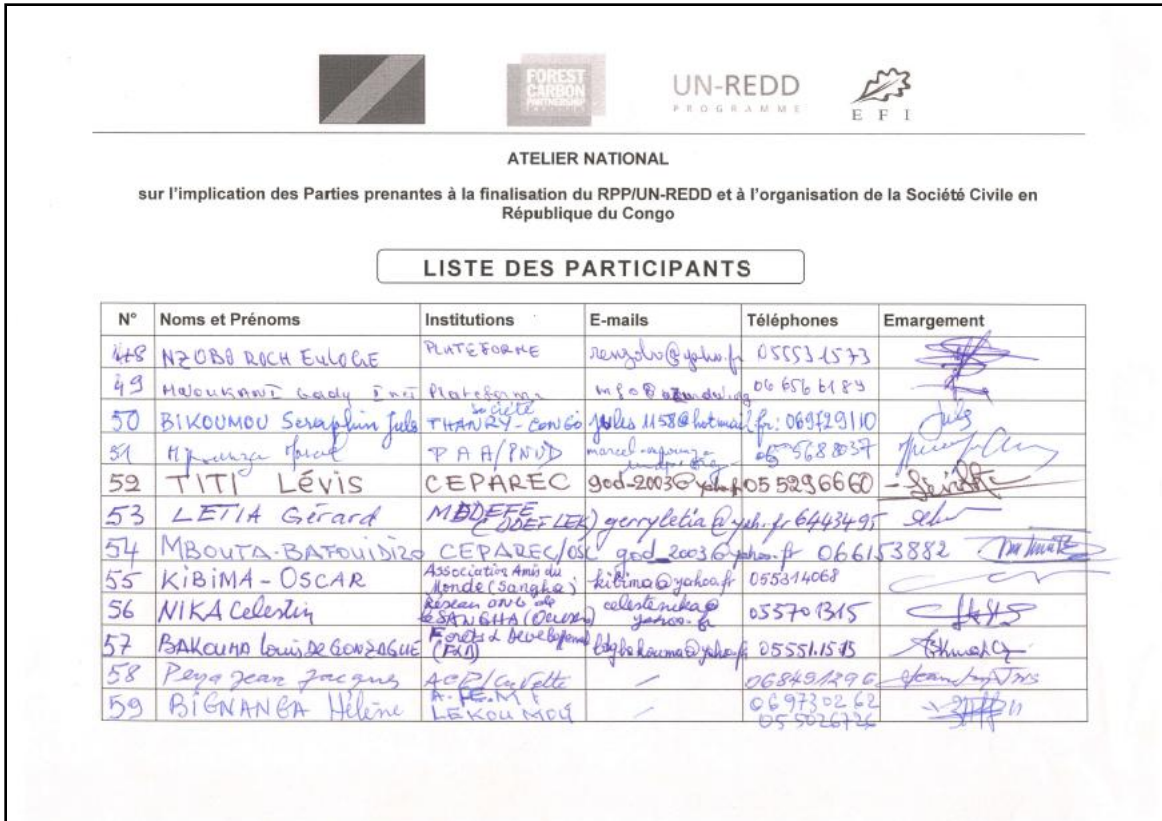 FOREST
CARBON
PARTNERSHIP
UN-REDD
PROGRAMME
EFI
ATELIER NATIONAL
sur l'implication des Parties prenantes à la finalisation du RPP/UN-REDD et à l'organisation de la Société Civile en
République du Congo
LISTE DES PARTICIPANTS
N° Noms et Prénoms Institutions E-mails Téléphones Emargement
48 NZOBO ROCH EULOGE PLATEFORME 055531573
49 Gady Plateforme 066566189
50 BIKOUMOU Seraphin Jules société THANRY-CONGO jules1158@hotmail.fr: 069729110 Jules
51 PAA/PNUD 055688037
52 TITI Lévis CEPAREC god-2003@yahoo.fr 055296660
53 LETIA Gérard gerryletia@yah.fr 6443495
54 MBOUTA-BAFOUIDIZO CEPAREC/OSC god_2003@yahoo.fr 066153882
55 KIBIMA-OSCAR Association Amis du Monde (Sangha) kibima@yahoo.fr 055314068
56 NIKA Celestin Réseau ONG de la SANGHA celestenika@yahoo.fr 055701315
57 BAKOUMA Louis DE GONZAGUE Forêts & Développement 05551.1515
58 Peya Jean Jacques ACP/Cuvette / 068491296
59 BIGNANGA Hélène LEKOUMOU / 069730262
055026726